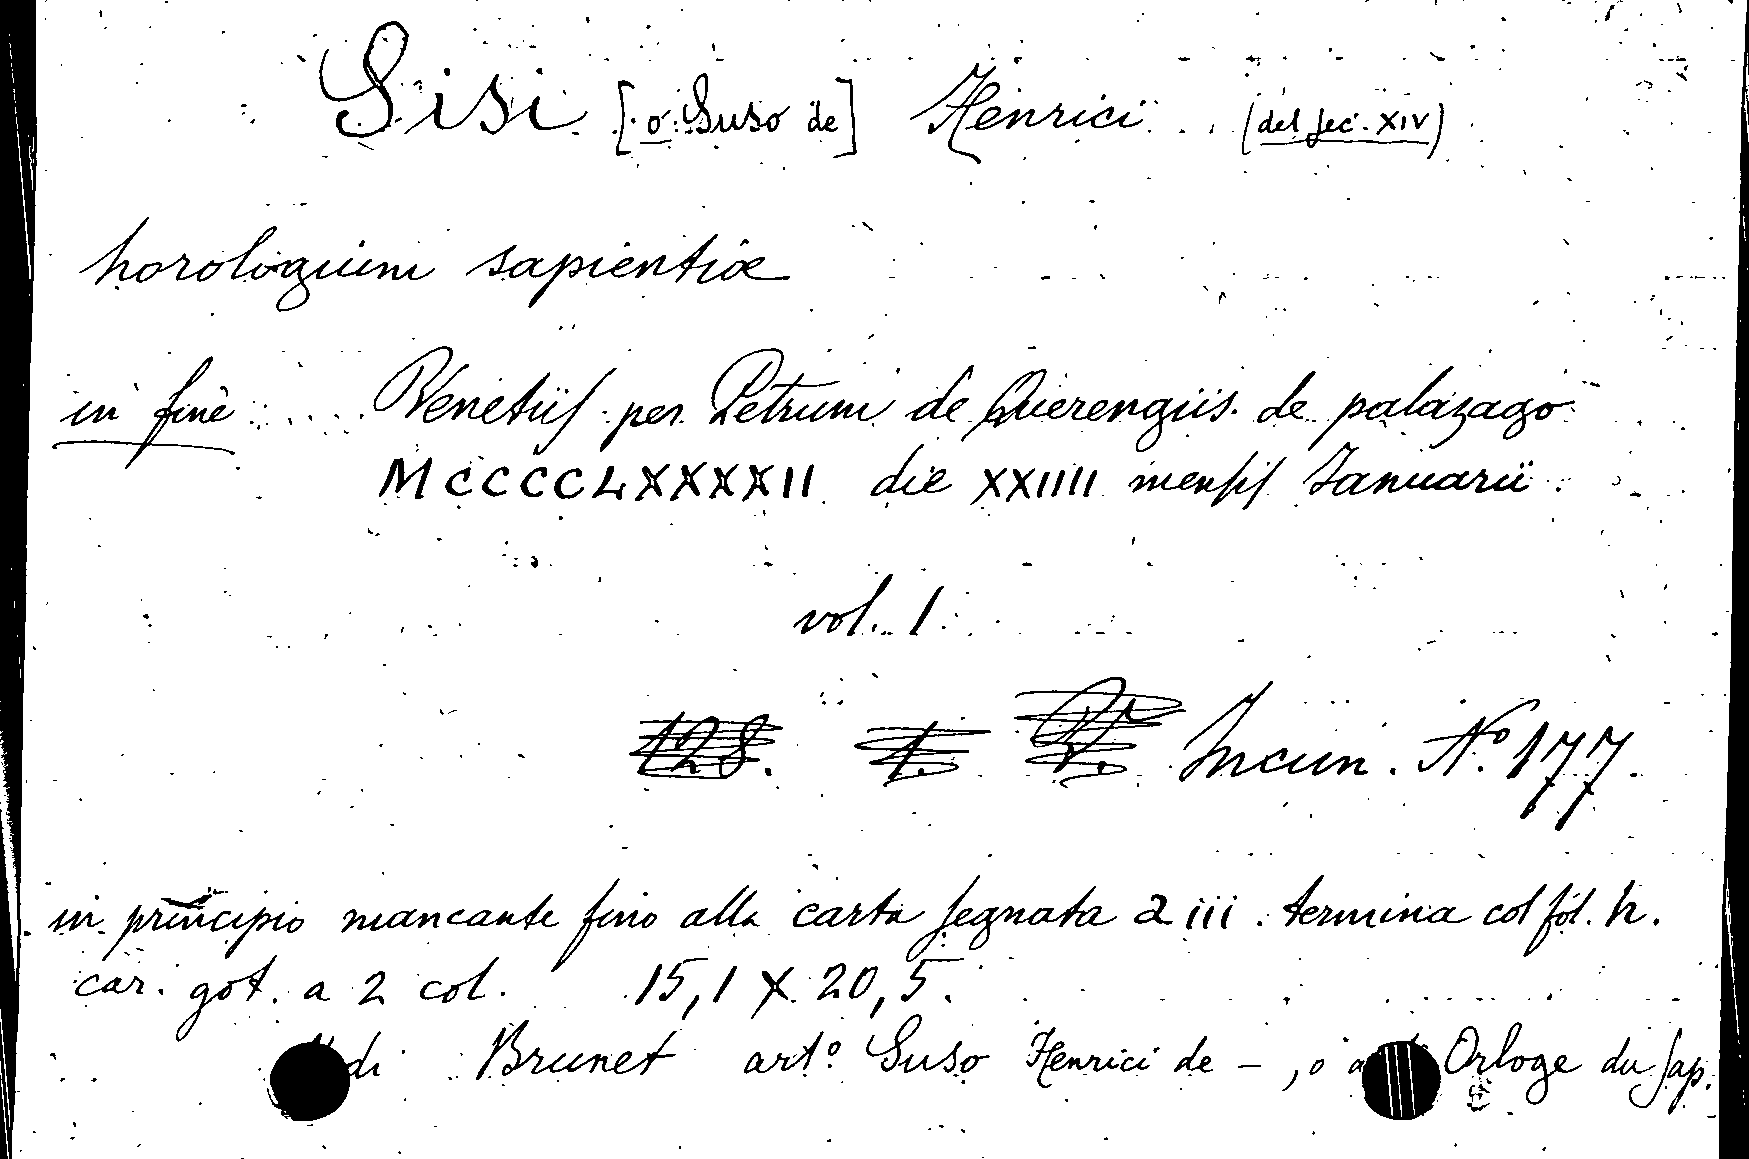 Sisi [o Suso de] Henrici (del sec. XIV)
horologium sapientiæ
in fine .... Venetiis per Petrum de Quierengiis de palazago
MCCCCLXXXXII die XXIIII mensis Januarii
vol. 1
128. 1. Incun. Nº 177.
in principio mancante fino alla carta segnata a iii. termina col fol. h.
car. got. a 2 col. 15,1 X 20,5.
di Brunet artº Suso Henrici de - , o Orloge du Sap.